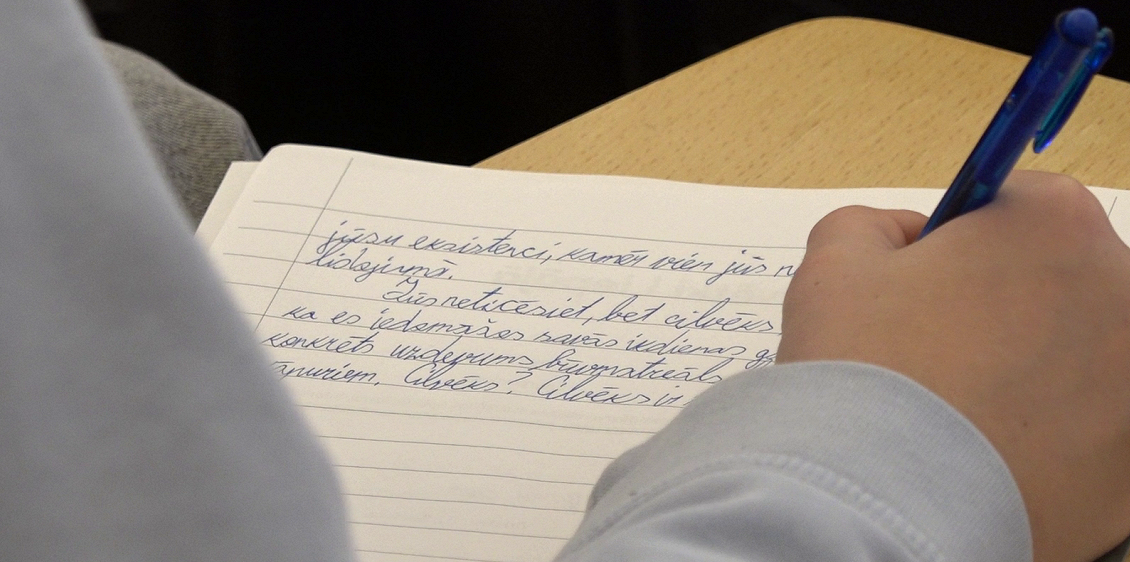 jūsu eksistenci, kamēr vien jūs
lidojumā.
Jūs neticēsiet, bet cilvēks
ka es iedomājos savās ikdienas
konkrēts uzdevums
Cilvēks? Cilvēks ir